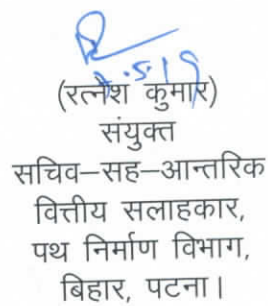 (रत्नेश कुमार)
संयुक्त
सचिव–सह–आन्तरिक
वित्तीय सलाहकार,
पथ निर्माण विभाग,
बिहार, पटना।